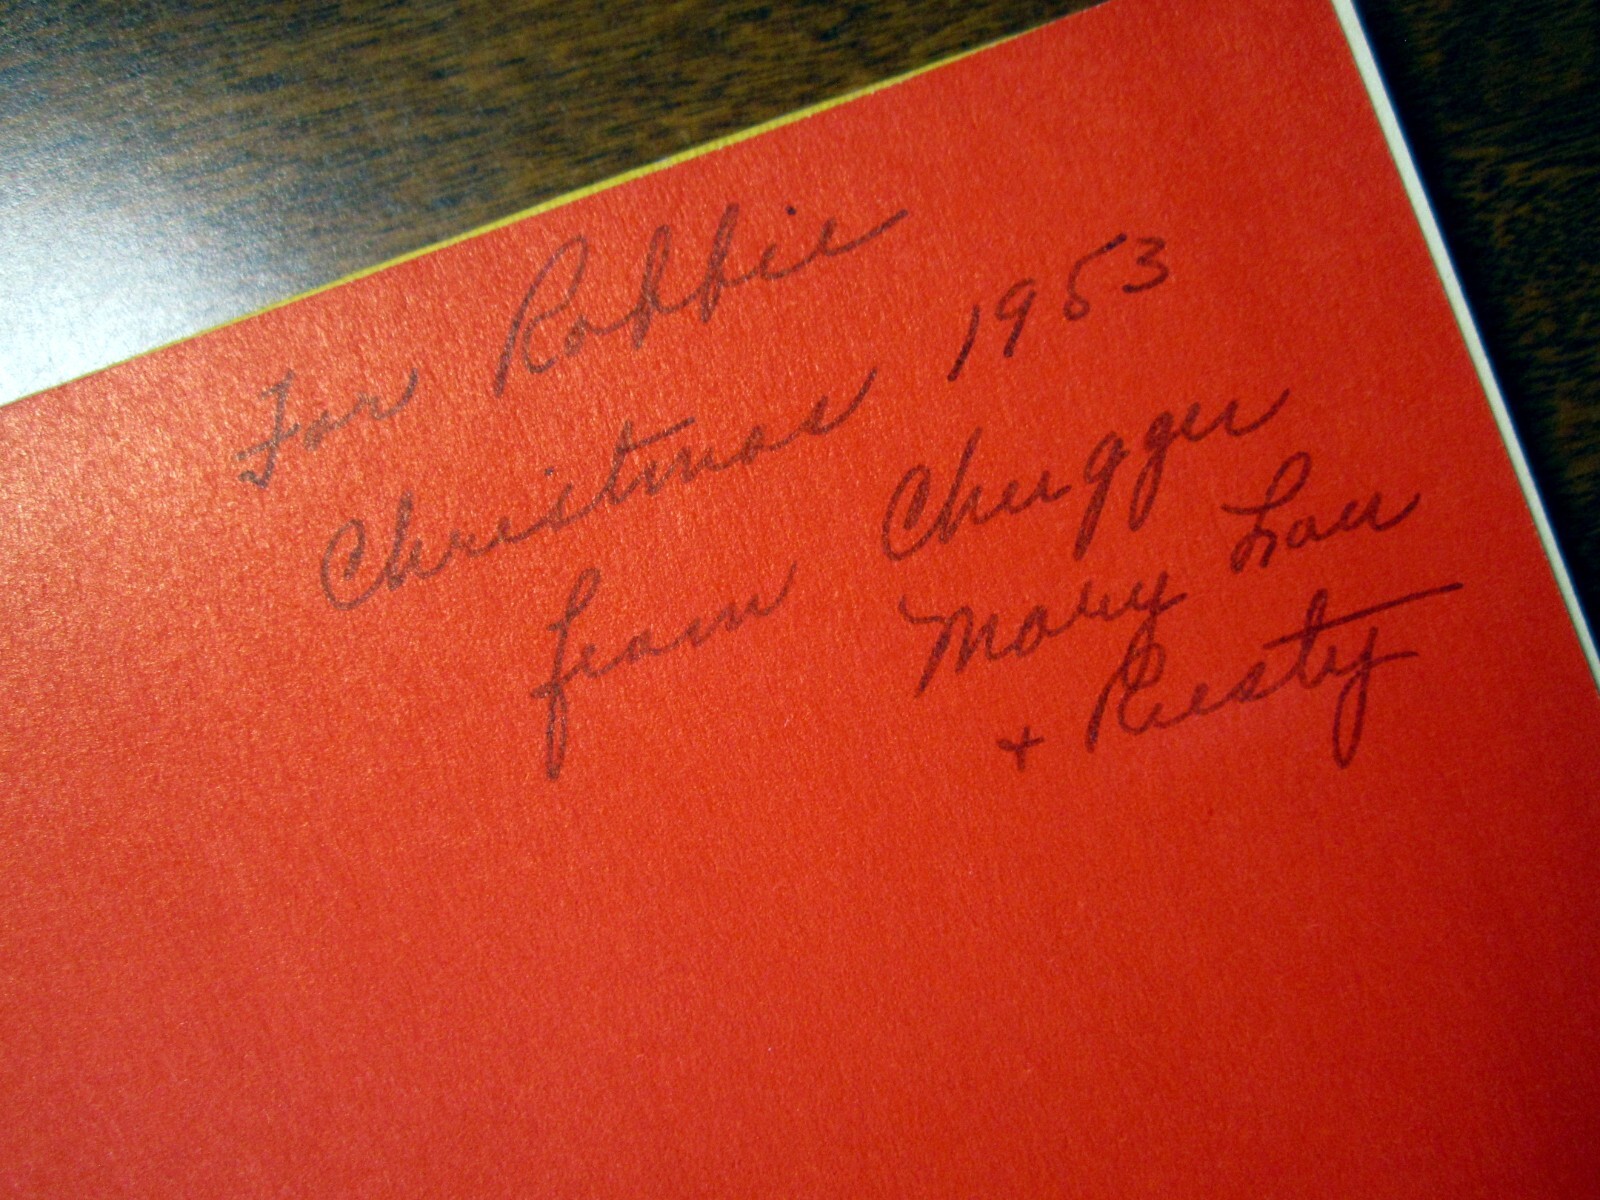 For Robbie
Christmas 1953
from Chugger
Mary Lou
+ Rusty